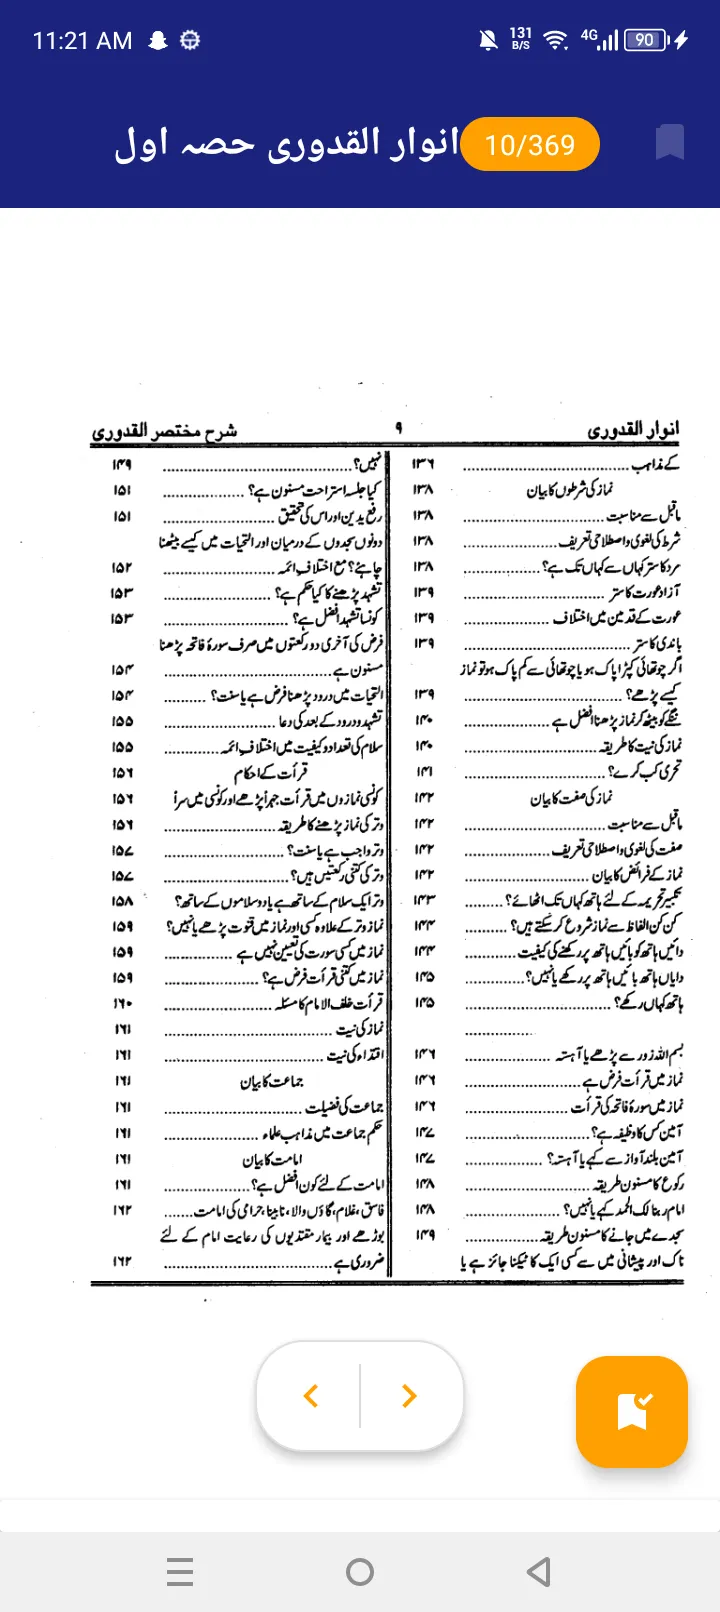 11:21 AM
131 B/S
4G
90
انوار القدوری حصہ اول
10/369
انوار القدوری ۹ شرح مختصر القدوری
کے مذاہب ۱۳۶
نماز کی شرطوں کا بیان ۱۳۸
ماقبل سے مناسبت ۱۳۸
شرط کی لغوی و اصطلاحی تعریف ۱۳۸
مرد کا ستر کہاں سے کہاں تک ہے؟ ۱۳۸
آزاد عورت کا ستر ۱۳۹
عورت کے قدمین میں اختلاف ۱۳۹
باندی کا ستر ۱۳۹
اگر چوتھائی کپڑا پاک ہو یا چوتھائی سے کم پاک ہو تو نماز
کیسے پڑھے؟ ۱۳۹
ننگے کو بیٹھ کر نماز پڑھنا افضل ہے ۱۴۰
نماز کی نیت کا طریقہ ۱۴۰
تحری کب کرے؟ ۱۴۱
نماز کی صفت کا بیان ۱۴۲
ماقبل سے مناسبت ۱۴۲
صفت کی لغوی و اصطلاحی تعریف ۱۴۲
نماز کے فرائض کا بیان ۱۴۲
تکبیر تحریمہ کے لئے ہاتھ کہاں تک اٹھائے؟ ۱۴۳
کن کن الفاظ سے نماز شروع کر سکتے ہیں؟ ۱۴۴
دائیں ہاتھ کو بائیں ہاتھ پر رکھنے کی کیفیت ۱۴۴
دایاں ہاتھ بائیں ہاتھ پر رکھے یا نہیں؟ ۱۴۵
ہاتھ کہاں رکھے؟ ۱۴۵
بسم اللہ زور سے پڑھے یا آہستہ ۱۴۶
نماز میں قرأت فرض ہے ۱۴۶
نماز میں سورۂ فاتحہ کی قرأت ۱۴۶
آمین کس کا وظیفہ ہے؟ ۱۴۷
آمین بلند آواز سے کہے یا آہستہ؟ ۱۴۷
رکوع کا مسنون طریقہ ۱۴۸
امام ربنا لک الحمد کہے یا نہیں؟ ۱۴۸
سجدے میں جانے کا مسنون طریقہ ۱۴۹
ناک اور پیشانی میں سے کسی ایک کا ٹیکنا جائز ہے یا
نہیں؟ ۱۴۹
کیا جلسۂ استراحت مسنون ہے؟ ۱۵۱
رفع یدین اور اس کی تحقیق ۱۵۱
دونوں سجدوں کے درمیان اور التحیات میں کیسے بیٹھنا
چاہئے؟ مع اختلاف ائمہ ۱۵۲
تشہد پڑھنے کا کیا حکم ہے؟ ۱۵۳
کونسا تشہد افضل ہے؟ ۱۵۳
فرض کی آخری دو رکعتوں میں صرف سورۂ فاتحہ پڑھنا
مسنون ہے ۱۵۴
التحیات میں درود پڑھنا فرض ہے یا سنت؟ ۱۵۴
تشہد و درود کے بعد کی دعا ۱۵۵
سلام کی تعداد و کیفیت میں اختلاف ائمہ ۱۵۵
قرأت کے احکام ۱۵۶
کونسی نمازوں میں قرأت جہراً پڑھے اور کونسی میں سراً ۱۵۶
وتر کی نماز پڑھنے کا طریقہ ۱۵۶
وتر واجب ہے یا سنت؟ ۱۵۷
وتر کی کتنی رکعتیں ہیں؟ ۱۵۷
وتر ایک سلام کے ساتھ ہے یا دو سلاموں کے ساتھ؟ ۱۵۸
نماز وتر کے علاوہ کسی اور نماز میں قنوت پڑھے یا نہیں؟ ۱۵۹
نماز میں کسی سورت کی تعیین نہیں ہے ۱۵۹
نماز میں کتنی قرأت فرض ہے؟ ۱۵۹
قرأت خلف الامام کا مسئلہ ۱۶۰
نماز کی نیت ۱۶۱
اقتداء کی نیت ۱۶۱
جماعت کا بیان ۱۶۱
جماعت کی فضیلت ۱۶۱
حکم جماعت میں مذاہب علماء ۱۶۱
امامت کا بیان ۱۶۱
امامت کے لئے کون افضل ہے؟ ۱۶۱
فاسق، غلام، گاؤں والا، نابینا، حرامی کی امامت ۱۶۲
بوڑھے اور بیمار مقتدیوں کی رعایت امام کے لئے
ضروری ہے ۱۶۲